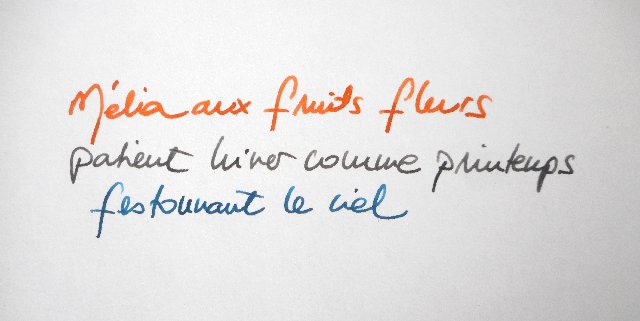 Mélia aux fruits fleurs
patient hiver comme printemps
festonnant le ciel